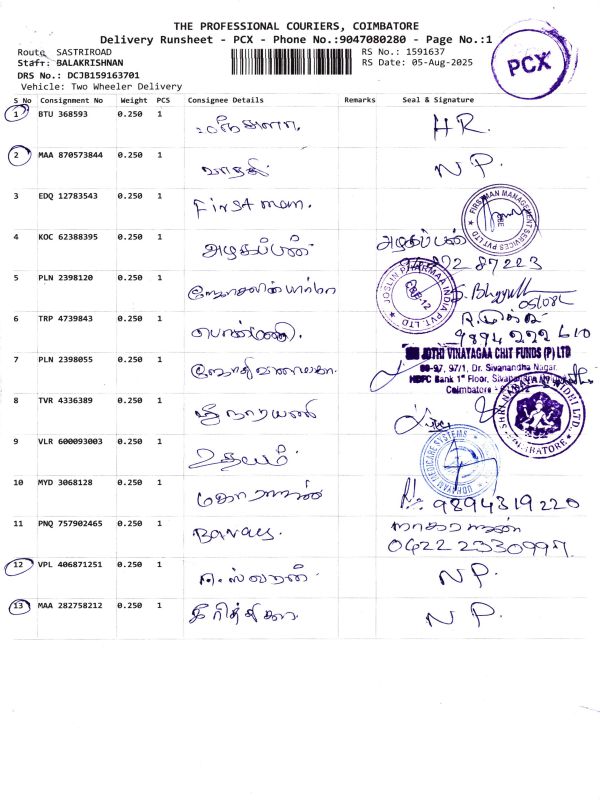 THE PROFESSIONAL COURIERS, COIMBATORE
Delivery Runsheet - PCX - Phone No.:9047080280 - Page No.:1
Route SASTRIROAD
RS No.: 1591637
Staff: BALAKRISHNAN
RS Date: 05-Aug-2025
DRS No.: DCJB159163701
Vehicle: Two Wheeler Delivery
PCX
S No Consignment No Weight PCS Consignee Details Remarks Seal & Signature
1 BTU 368593 0.250 1 HR.
2 MAA 870573844 0.250 1 NP.
3 EDQ 12783543 0.250 1 First man.
FIRSTMAN MANAGEMENT SERVICES PVT LTD
4 KOC 62388395 0.250 1 அழகப்பன் அழகப்பன்
87223
5 PLN 2398120 0.250 1
JOSLIN PHARMAA INDIA PVT. LTD
CBE-12
05/08
6 TRP 4739843 0.250 1 பொன்னி.
9894 222 610
7 PLN 2398055 0.250 1
JOTHI VINAYAGAA CHIT FUNDS (P) LTD
96-97, 97/1, Dr. Sivanandha Nagar,
HDFC Bank 1st Floor,
Coimbatore
8 TVR 4336389 0.250 1 ஸ்ரீ நாராயணி
SHRI NARAYANI NIDHI LTD.
COIMBATORE
9 VLR 600093003 0.250 1 உதயம்
UDHAYAM MEDICARE SYSTEMS
10 MYD 3068128 0.250 1 மகாராஜன்
9894319220
11 PNQ 757902465 0.250 1
0422 2330997
12 VPL 406871251 0.250 1 NP.
13 MAA 282758212 0.250 1 கீர்த்திகா. NP.